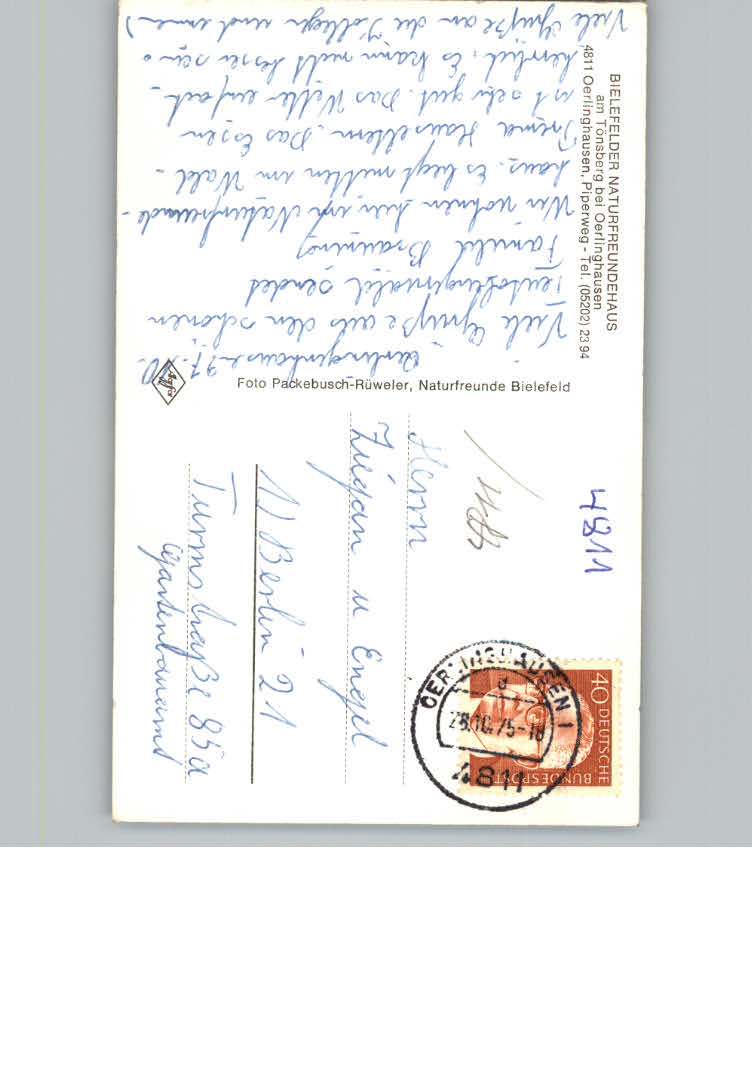 BIELEFELDER NATURFREUNDEHAUS
am Tönsberg bei Oerlinghausen
4811 Oerlinghausen, Piperweg - Tel. (05202) 23 94
Foto Packebusch-Rüweler, Naturfreunde Bielefeld
Agfa
Oerlinghausen 27.10.
Viele Grüße aus den schönen
Teutoburgerwald sendet
Familie
Wir wohnen hier im Naturfreunde-
haus. Es liegt mitten im Wald -
Prima Hauseltern. Das Essen
ist sehr gut. Das Wetter einfach -
herrlich. Es kann nicht besser sein.
Viele Grüße an die Kollegen und
4811
40 DEUTSCHE
BUNDESPOST
OERLINGHAUSEN 1
a
28.10.75-18
4811
Herrn
u Engel
1) Berlin 21
Turmstraße 85a
Gartenbauamt